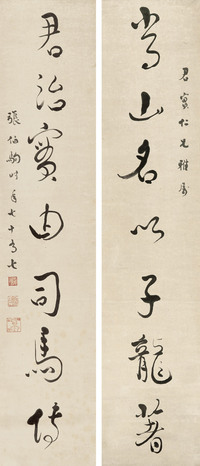 君實仁兄雅屬
常山名以子龍著
君治實由司馬傳
張伯駒時年七十有七